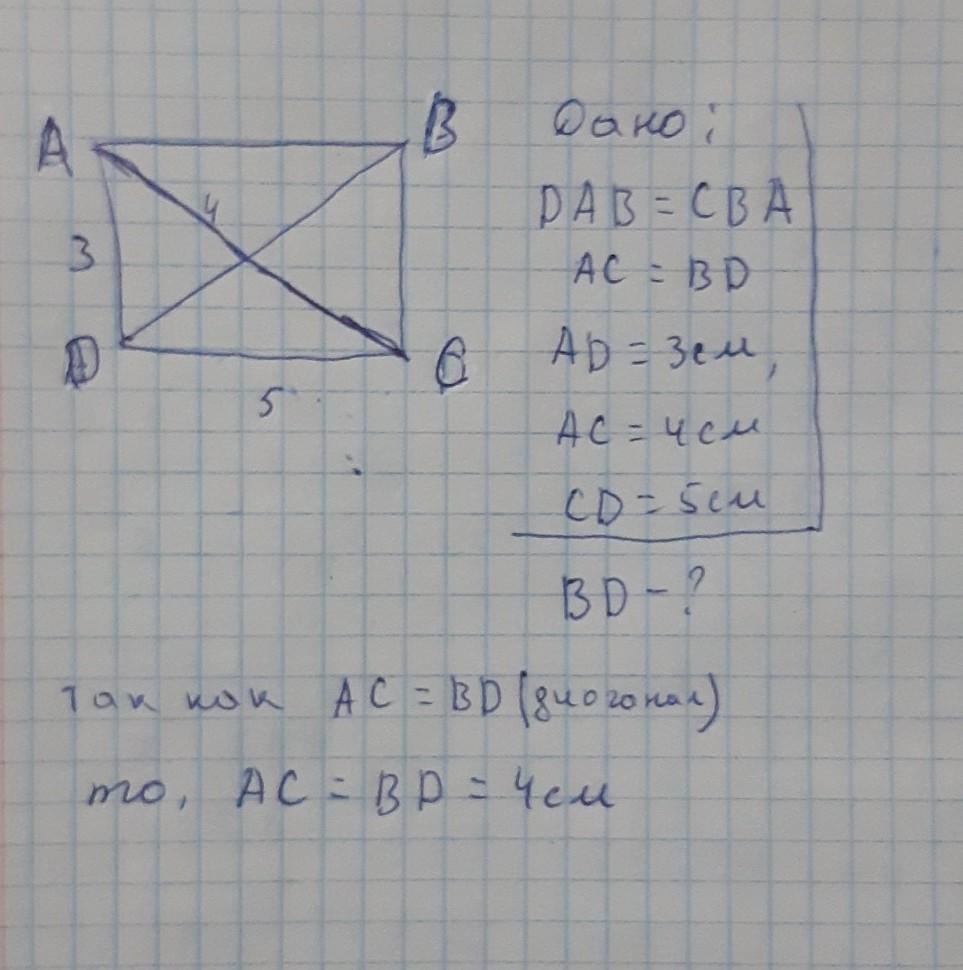 A
B
4
3
D
C
5
Дано:
DAB = CBA
AC = BD
AD = 3см,
AC = 4см
CD = 5см
BD - ?
Так как AC = BD (диогонал)
то, AC = BD = 4см